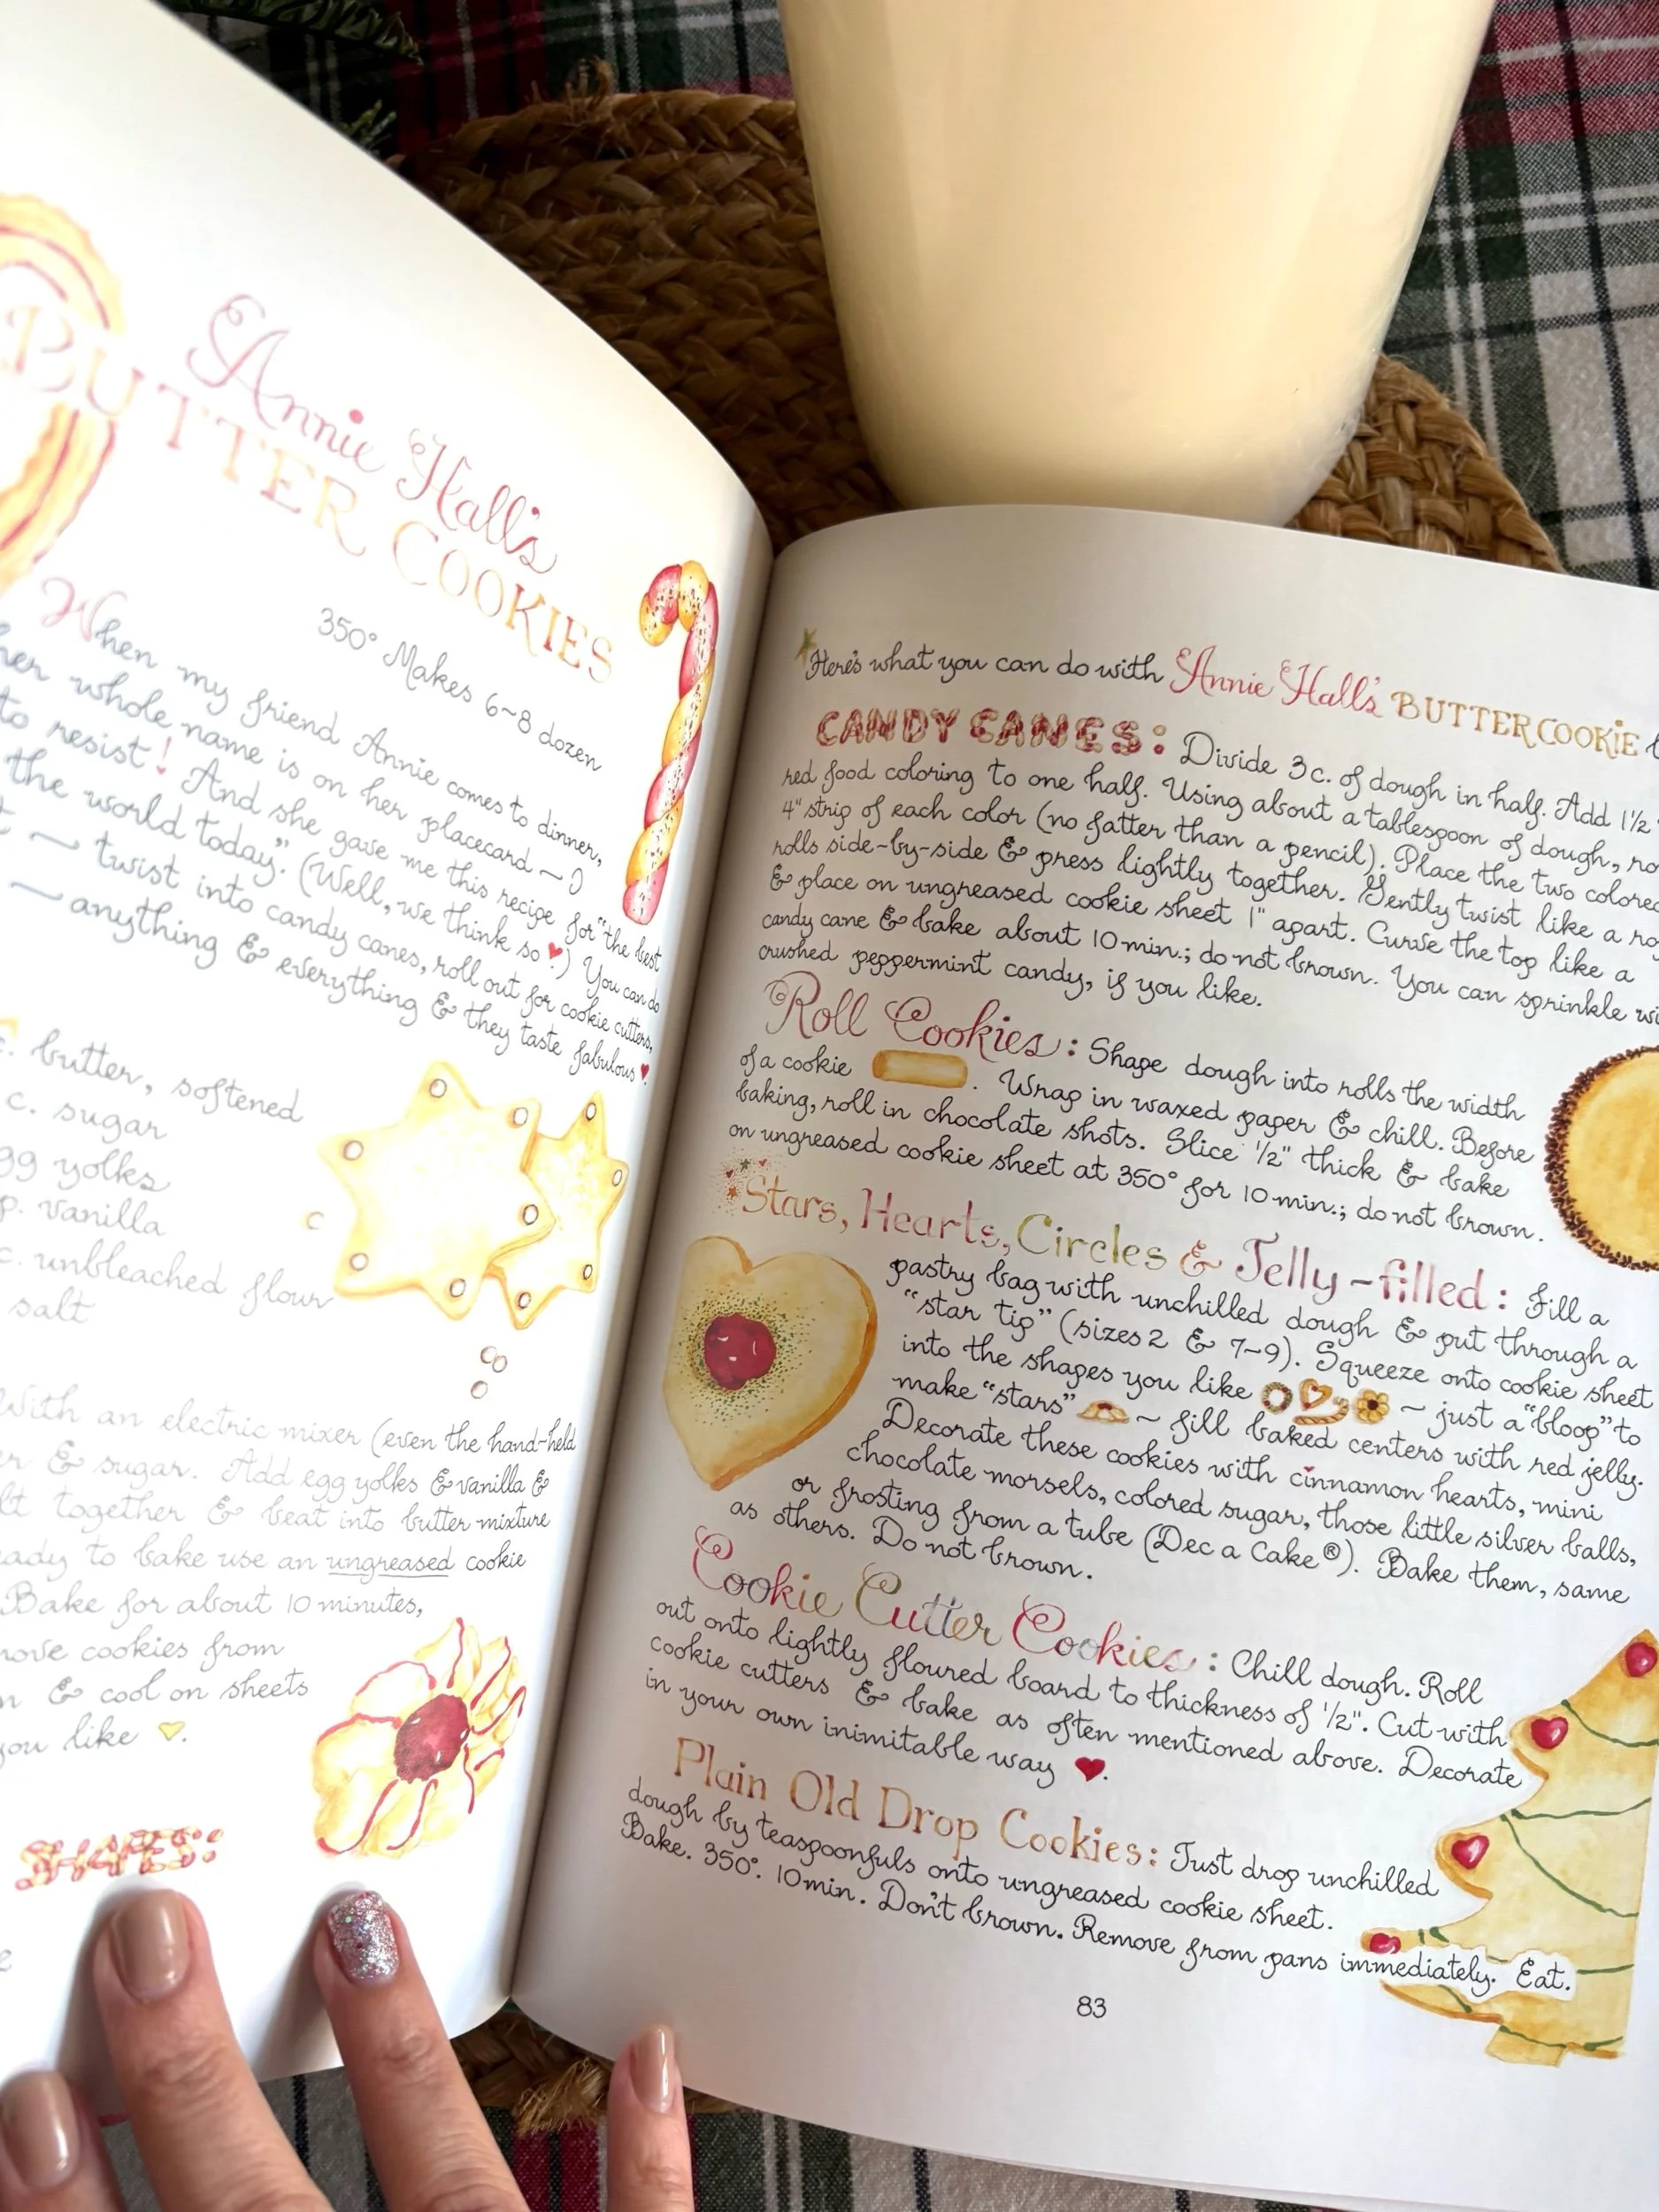 Annie Hall's
BUTTER COOKIES
350° Makes 6~8 dozen
When my friend Annie comes to dinner,
her whole name is on her placecard ~
to resist! And she gave me this recipe for "the best
the world today." (Well, we think so ♥.) You can do
~ twist into candy canes, roll out for cookie cutters,
~ anything & everything & they taste fabulous ♥.
butter, softened
c. sugar
yolks
vanilla
c. unbleached flour
salt
With an electric mixer (even the hand-held
& sugar. Add egg yolks & vanilla &
together & beat into butter mixture
to bake use an ungreased cookie
Bake for about 10 minutes,
cookies from
& cool on sheets
you like ♥.
SHAPES:
Here's what you can do with Annie Hall's BUTTER COOKIE
CANDY CANES: Divide 3 c. of dough in half. Add 1½
red food coloring to one half. Using about a tablespoon of dough,
4" strip of each color (no fatter than a pencil). Place the two colored
rolls side-by-side & press lightly together. Gently twist like a
& place on ungreased cookie sheet 1" apart. Curve the top like a
candy cane & bake about 10 min.; do not brown. You can sprinkle
crushed peppermint candy, if you like.
Roll Cookies: Shape dough into rolls the width
of a cookie . Wrap in waxed paper & chill. Before
baking, roll in chocolate shots. Slice ½" thick & bake
on ungreased cookie sheet at 350° for 10 min.; do not brown.
Stars, Hearts, Circles & Jelly-filled: Fill a
pastry bag with unchilled dough & put through a
"star tip" (sizes 2 & 7~9). Squeeze onto cookie sheet
into the shapes you like ~ just a "bloop" to
make "stars" ~ fill baked centers with red jelly.
Decorate these cookies with cinnamon hearts, mini
chocolate morsels, colored sugar, those little silver balls,
or frosting from a tube (Dec a Cake®). Bake them, same
as others. Do not brown.
Cookie Cutter Cookies: Chill dough. Roll
out onto lightly floured board to thickness of ½". Cut with
cookie cutters & bake as often mentioned above. Decorate
in your own inimitable way ♥.
Plain Old Drop Cookies: Just drop unchilled
dough by teaspoonfuls onto ungreased cookie sheet.
Bake. 350°. 10 min. Don't brown. Remove from pans immediately. Eat.
83